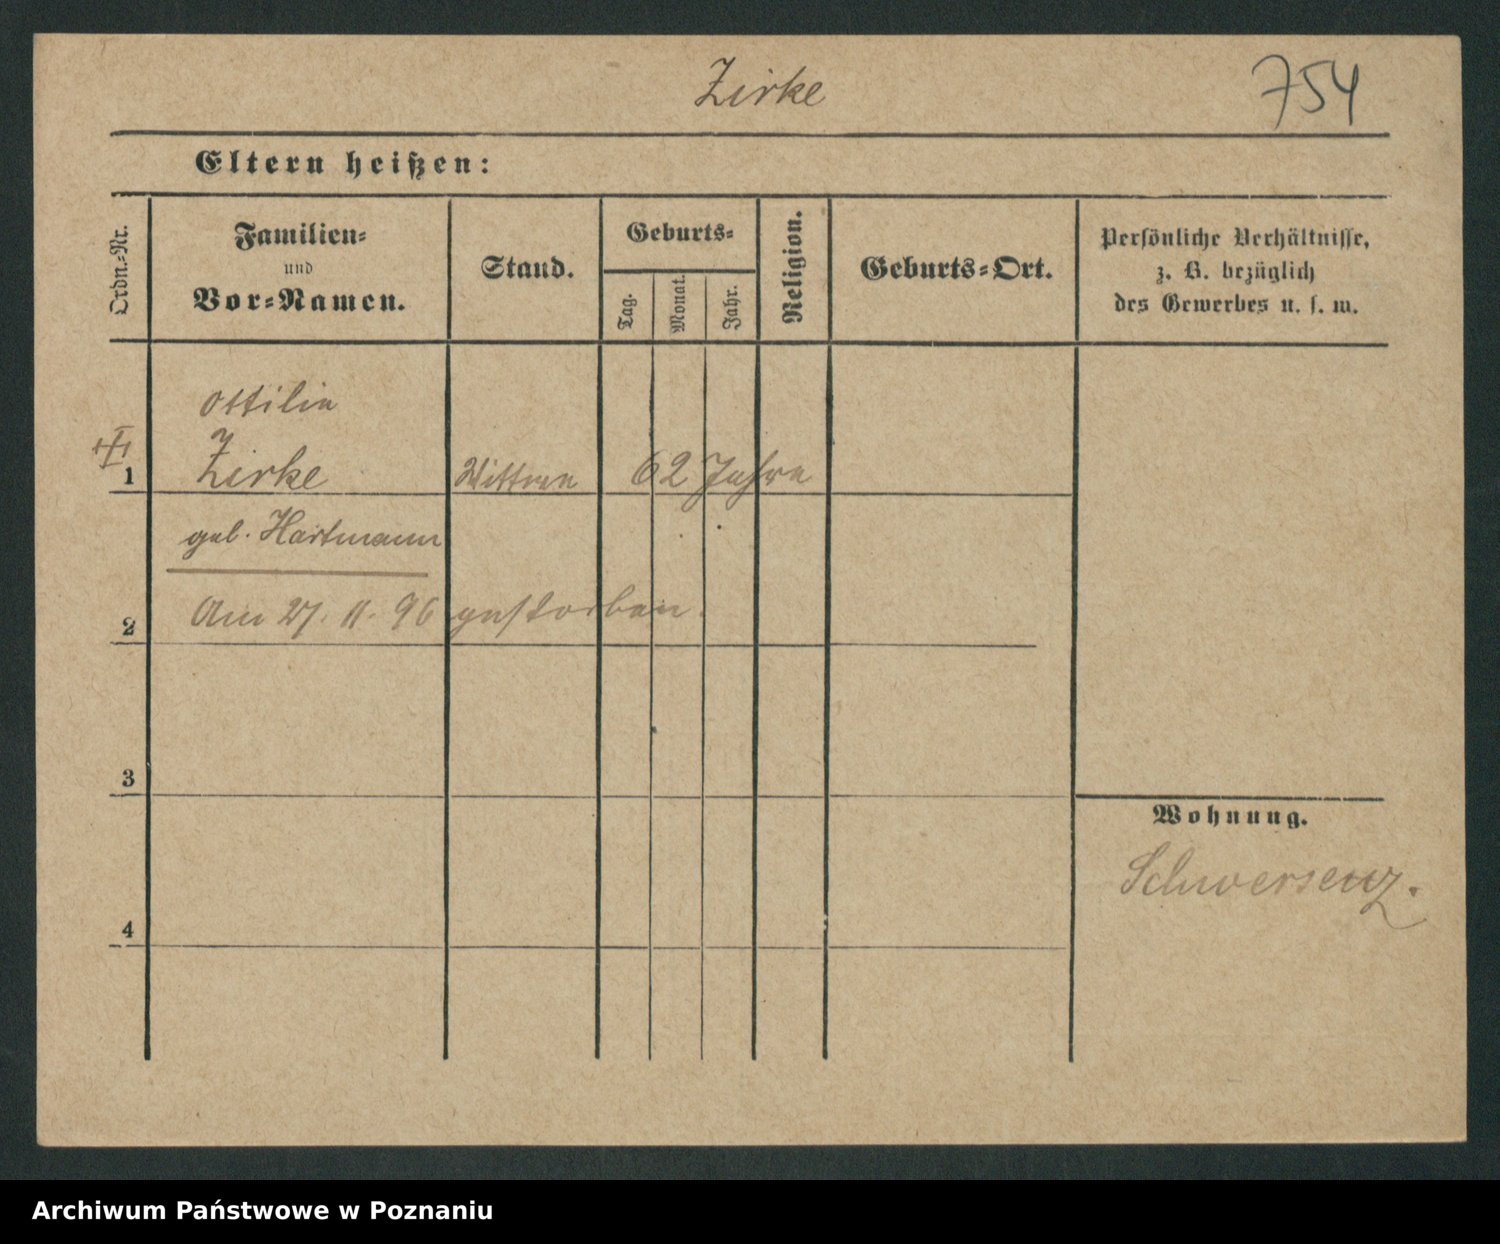 Zirke
754
Eltern heißen:
Ordn.-Nr.
Familien-
und
Vor-Namen.
Stand.
Geburts-
Tag.
Monat.
Jahr.
Religion.
Geburts-Ort.
Persönliche Verhältnisse,
z. B. bezüglich
des Gewerbes u. s. w.
Ottilie
1 Zirke Wittwe 62 Jahre
geb. Hartmann
2 Am 27. 11. 96 gestorben.
3
Wohnung.
Schwersenz.
4
Archiwum Państwowe w Poznaniu